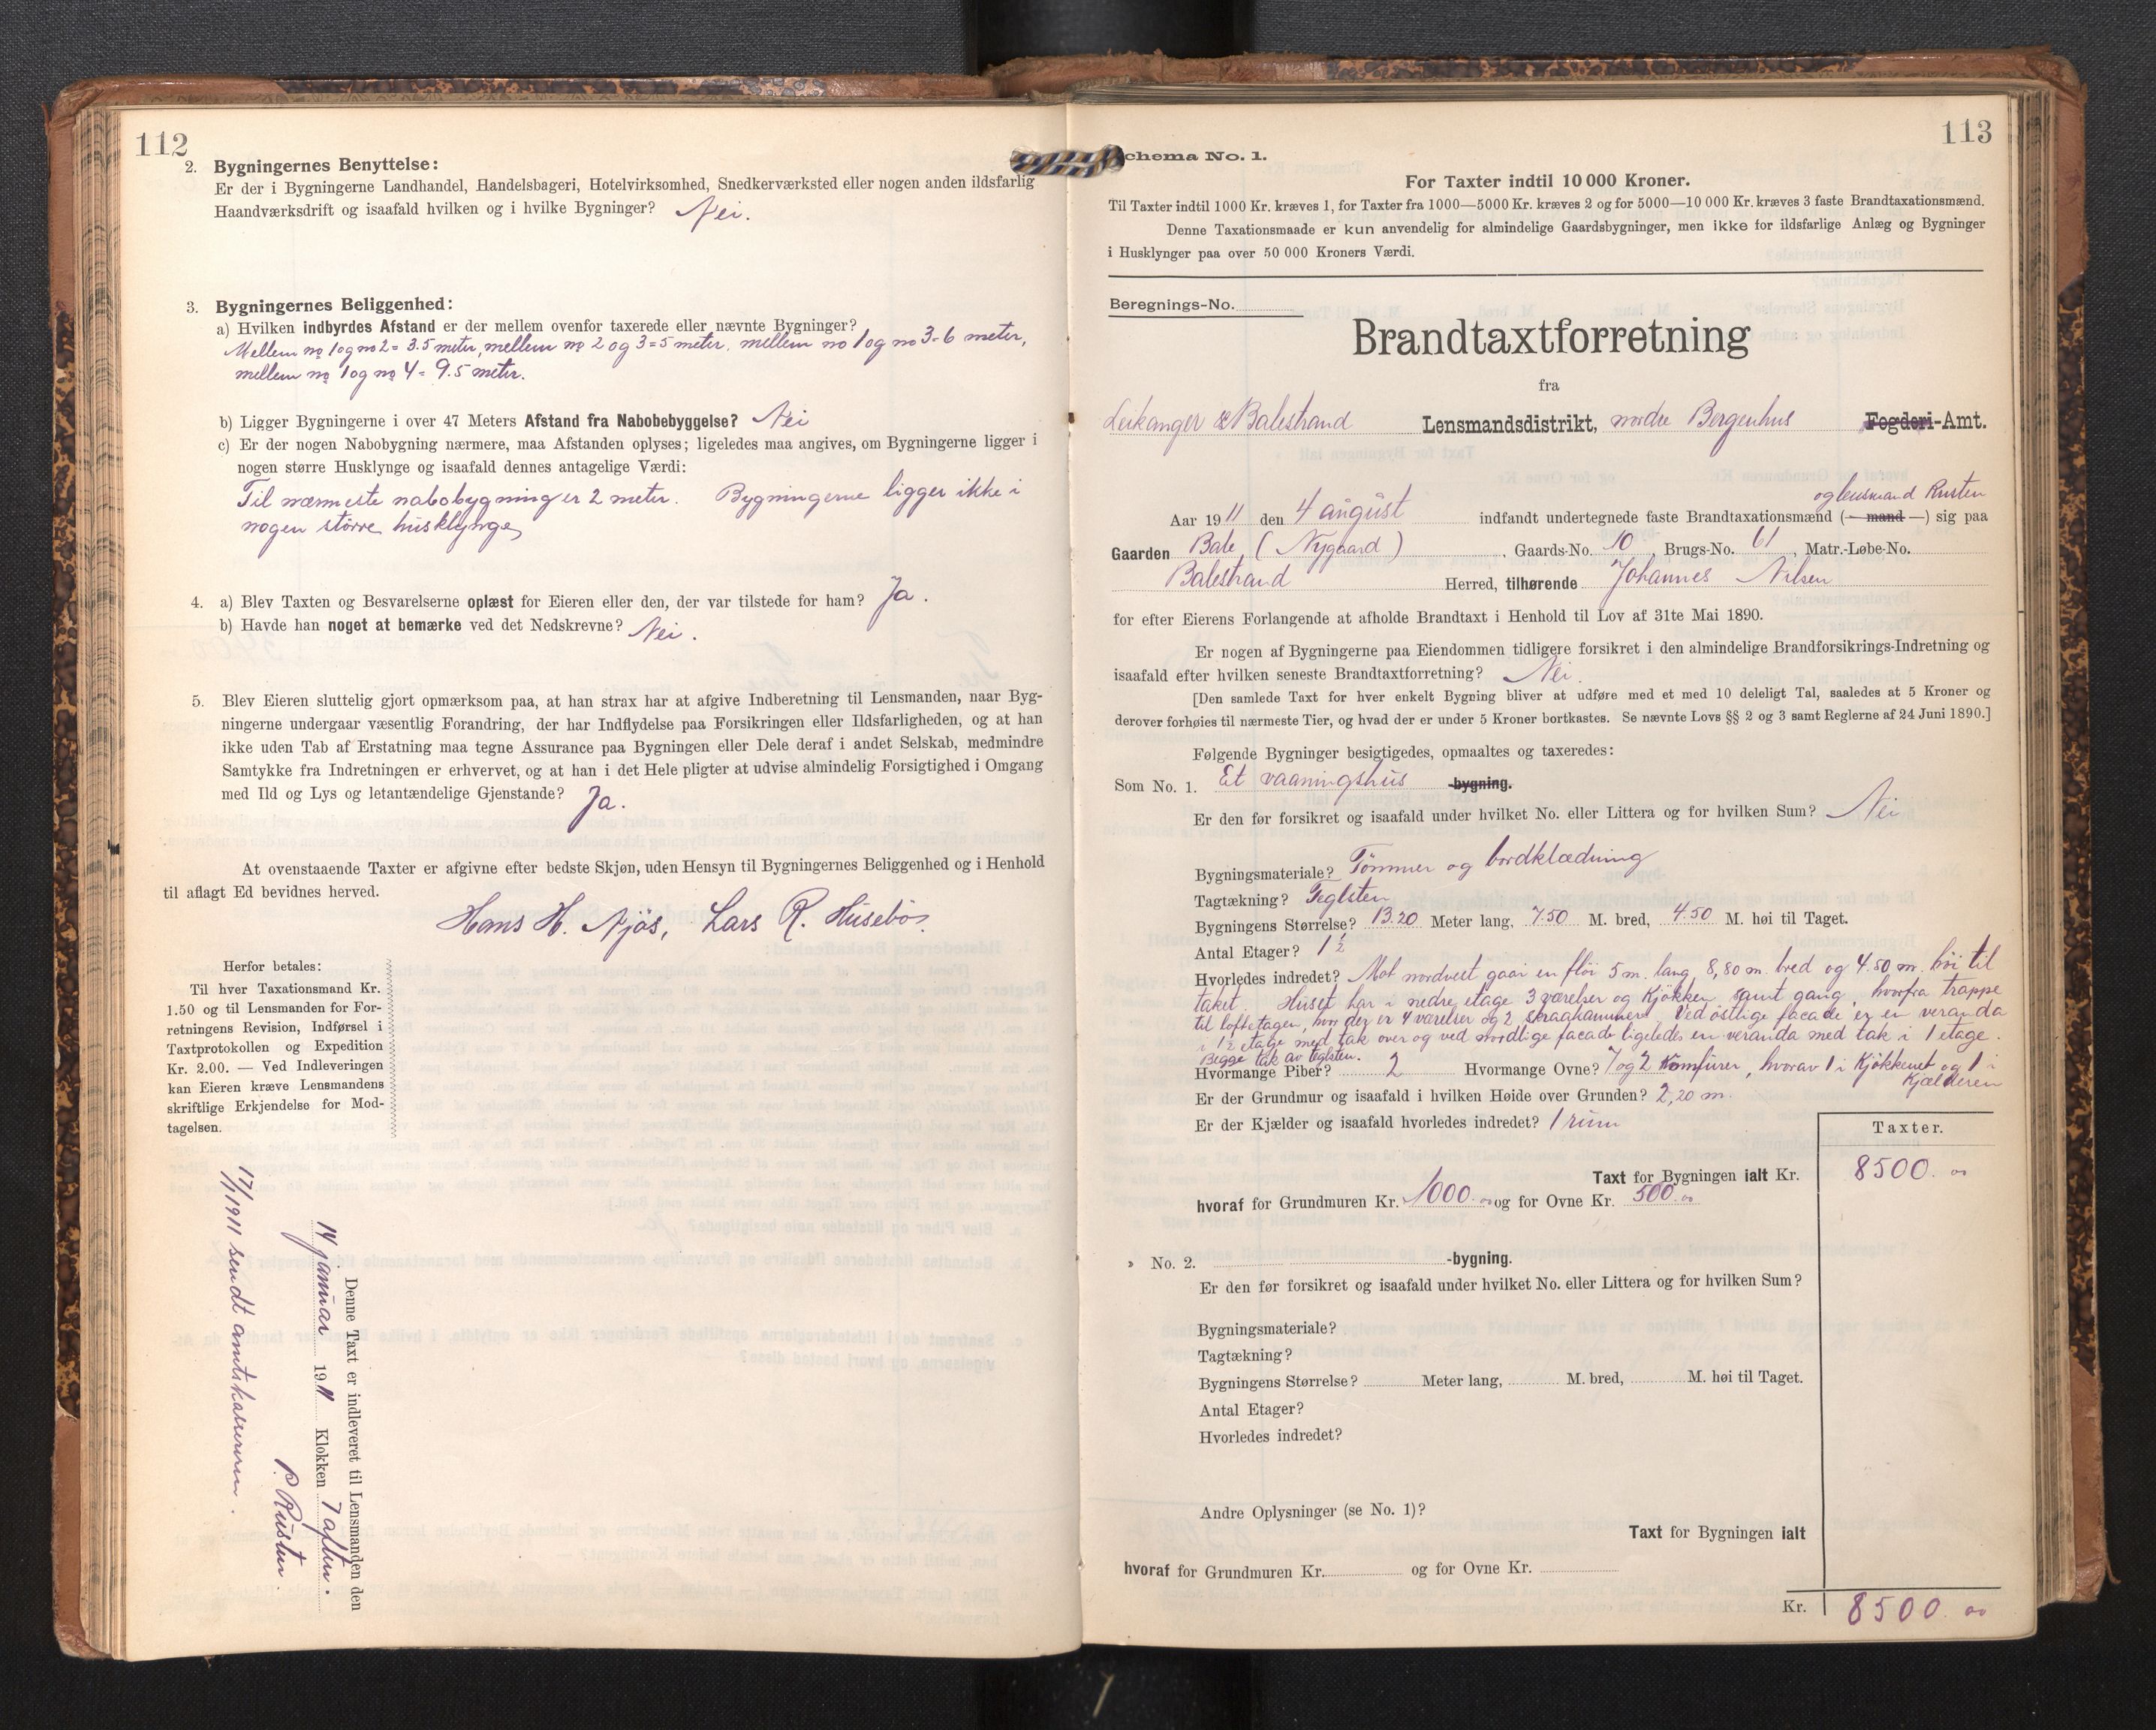 112
2. Bygningernes Benyttelse:
Er der i Bygningerne Landhandel, Handelsbageri, Hotelvirksomhed, Snedkerværksted eller nogen anden ildsfarlig
Haandværksdrift og isaafald hvilken og i hvilke Bygninger? Nei.
3. Bygningernes Beliggenhed:
a) Hvilken indbyrdes Afstand er der mellem ovenfor taxerede eller nævnte Bygninger?
Mellem no 1 og no 2 = 3.5 meter, mellem no 2 og 3 = 5 meter. mellem no 1 og no 3 = 6 meter,
mellem no 1 og no 4 = 9.5 meter.
b) Ligger Bygningerne i over 47 Meters Afstand fra Nabobebyggelse? Nei
c) Er der nogen Nabobygning nærmere, maa Afstanden oplyses; ligeledes maa angives, om Bygningerne ligger i
nogen større Husklynge og isaafald dennes antagelige Værdi:
Til nærmeste nabobygning er 2 meter. Bygningerne ligger ikke i
nogen större husklynge
4. a) Blev Taxten og Besvarelserne oplæst for Eieren eller den, der var tilstede for ham? Ja.
b) Havde han noget at bemærke ved det Nedskrevne? Nei.
5. Blev Eieren sluttelig gjort opmærksom paa, at han strax har at afgive Indberetning til Lensmanden, naar Byg-
ningerne undergaar væsentlig Forandring, der har Indflydelse paa Forsikringen eller Ildsfarligheden, og at han
ikke uden Tab af Erstatning maa tegne Assurance paa Bygningen eller Dele deraf i andet Selskab, medmindre
Samtykke fra Indretningen er erhvervet, og at han i det Hele pligter at udvise almindelig Forsigtighed i Omgang
med Ild og Lys og letantændelige Gjenstande? Ja.
At ovenstaaende Taxter er afgivne efter bedste Skjøn, uden Hensyn til Bygningernes Beliggenhed og i Henhold
til aflagt Ed bevidnes herved.
Hans H. Njös, Lars R. Husebö.
Herfor betales:
Til hver Taxationsmand Kr.
1.50 og til Lensmanden for For-
retningens Revision, Indførsel i
Taxtprotokollen og Expedition
Kr. 2.00. — Ved Indleveringen
kan Eieren kræve Lensmandens
skriftlige Erkjendelse for Mod-
tagelsen.
Denne Taxt er indleveret til Lensmanden den
14 januar 1911 Klokken 7 aften.
P. Rusten
17/1 1911 sendt amtskasereren.
113
Schema No. 1.
For Taxter indtil 10 000 Kroner.
Til Taxter indtil 1000 Kr. kræves 1, for Taxter fra 1000—5000 Kr. kræves 2 og for 5000—10 000 Kr. kræves 3 faste Brandtaxationsmænd.
Denne Taxationsmaade er kun anvendelig for almindelige Gaardsbygninger, men ikke for ildsfarlige Anlæg og Bygninger
i Husklynger paa over 50 000 Kroners Værdi.
Beregnings-No.
Brandtaxtforretning
fra
Leikanger & Balestrand Lensmandsdistrikt, nordre Bergenhus Fogderi-Amt.
og lensmand Rusten
Aar 1911 den 4 august indfandt undertegnede faste Brandtaxationsmænd (— mand —) sig paa
Gaarden Bale (Nygaard), Gaards-No. 10, Brugs-No. 61, Matr.-Løbe-No.
Balestrand Herred, tilhørende Johannes Nilsen
for efter Eierens Forlangende at afholde Brandtaxt i Henhold til Lov af 31te Mai 1890.
Er nogen af Bygningerne paa Eiendommen tidligere forsikret i den almindelige Brandforsikrings-Indretning og
isaafald efter hvilken seneste Brandtaxtforretning? Nei.
[Den samlede Taxt for hver enkelt Bygning bliver at udføre med et med 10 deleligt Tal, saaledes at 5 Kroner og
derover forhøies til nærmeste Tier, og hvad der er under 5 Kroner bortkastes. Se nævnte Lovs §§ 2 og 3 samt Reglerne af 24 Juni 1890.]
Følgende Bygninger besigtigedes, opmaaltes og taxeredes:
Som No. 1. Et vaaningshus -bygning.
Er den før forsikret og isaafald under hvilket No. eller Littera og for hvilken Sum? Nei
Bygningsmateriale? Tömmer og bordklædning
Tagtækning? Teglsten
Bygningens Størrelse? 13.20 Meter lang, 7.50 M. bred, 4.50 M. høi til Taget.
Antal Etager? 1 ½
Hvorledes indredet? Mot nordvest gaar en flöi 5 m. lang, 8,80 m. bred og 4.50 m. höi til
taket. Huset har i nedre etage 3 værelser og Kjökken samt gang, hvorfra trappe
til loftsetagen, hvor der er 4 værelser og 2 skraakammere. Ved östlige facade er en veranda
i 1½ etage med tak over og ved nordlige facade ligeledes en veranda med tak i 1 etage.
Begge tak av teglsten.
Hvormange Piber? 2 Hvormange Ovne? 7 og 2 komfürer, hvorav 1 i Kjökkenet og 1 i
Kjælderen
Er der Grundmur og isaafald i hvilken Høide over Grunden? 2,20 m.
Er der Kjælder og isaafald hvorledes indredet? 1 rum
Taxter.
Taxt for Bygningen ialt Kr. 8500.00
hvoraf for Grundmuren Kr. 1000.00 og for Ovne Kr. 500.00
» No. 2. -bygning.
Er den før forsikret og isaafald under hvilket No. eller Littera og for hvilken Sum?
Bygningsmateriale?
Tagtækning?
Bygningens Størrelse? Meter lang, M. bred, M. høi til Taget.
Antal Etager?
Hvorledes indredet?
Andre Oplysninger (se No. 1)?
Taxt for Bygningen ialt
hvoraf for Grundmuren Kr. og for Ovne Kr.
Kr. 8500.00